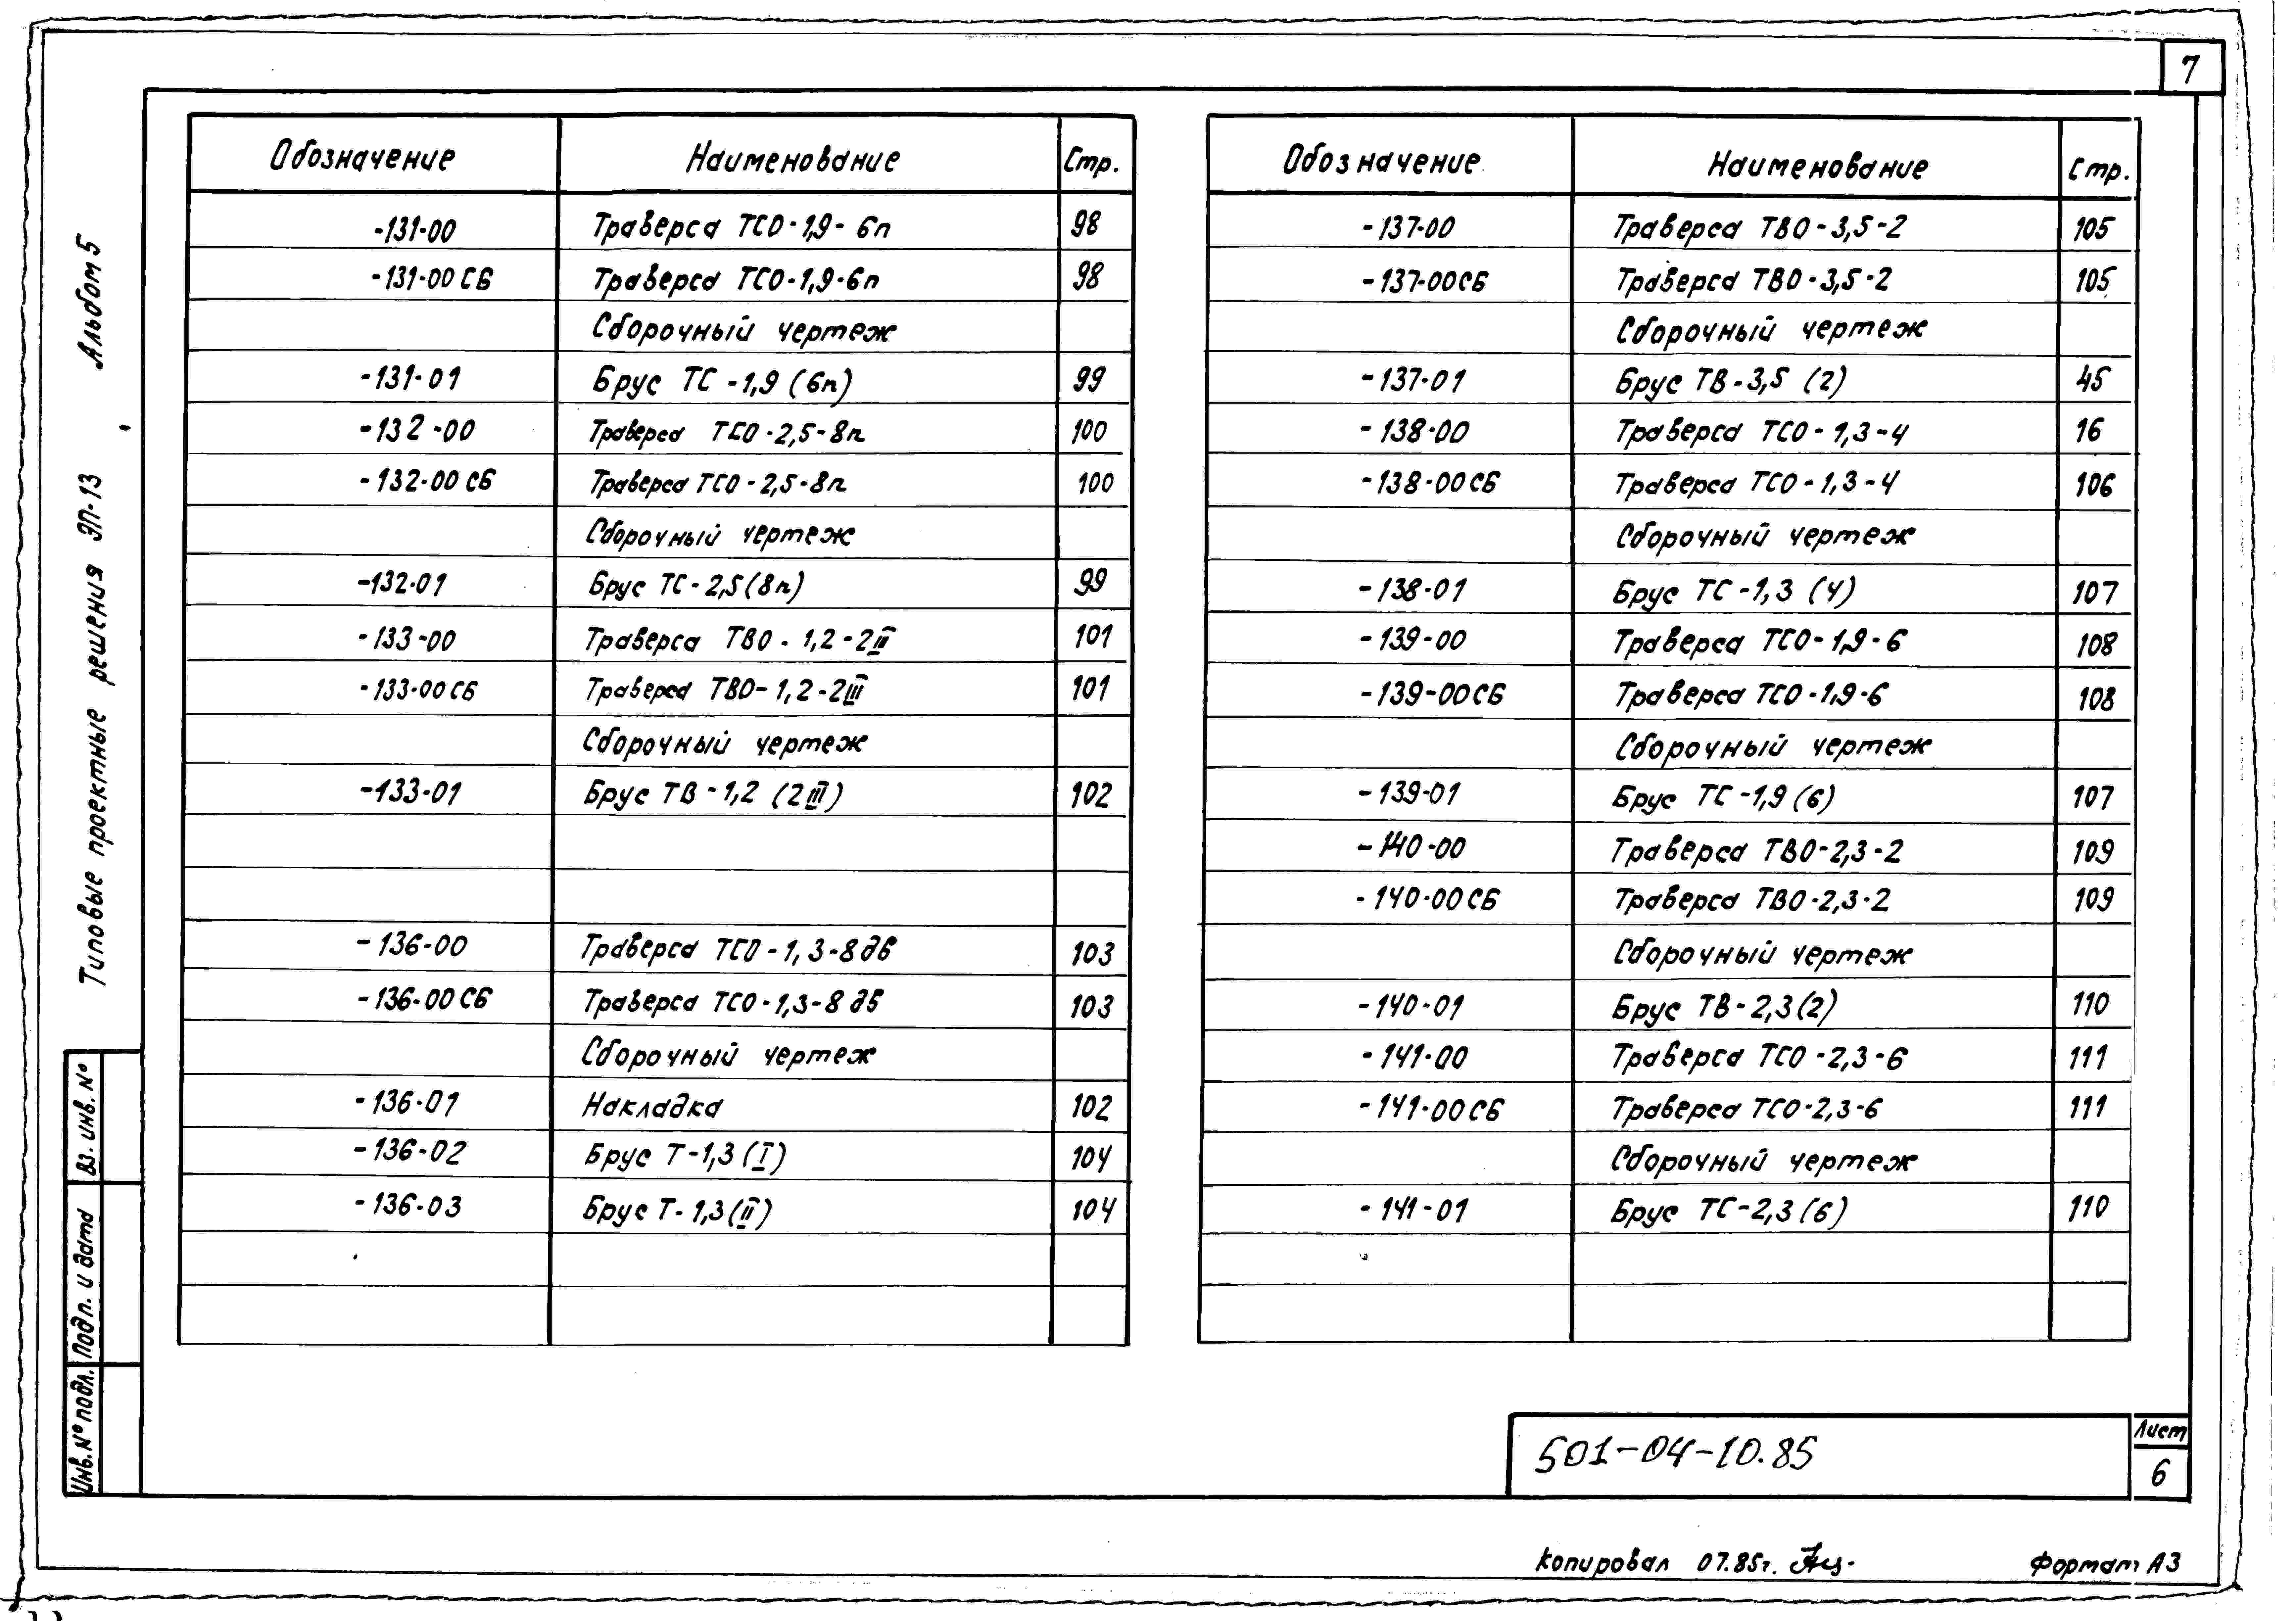 7
Альбом 5
Типовые проектные решения ЭП-13
Обозначение Наименование Стр.
-131-00 Траверса ТСО-1,9-6п 98
-131-00 СБ Траверса ТСО-1,9-6п 98
Сборочный чертеж
-131-01 Брус ТС-1,9 (6п) 99
-132-00 Траверса ТСО-2,5-8п 100
-132-00 СБ Траверса ТСО-2,5-8п 100
Сборочный чертеж
-132-01 Брус ТС-2,5 (8п) 99
-133-00 Траверса ТВО-1,2-2II 101
-133-00 СБ Траверса ТВО-1,2-2III 101
Сборочный чертеж
-133-01 Брус ТВ-1,2 (2III) 102
-136-00 Траверса ТСО-1,3-8дб 103
-136-00 СБ Траверса ТСО-1,3-8дб 103
Сборочный чертеж
-136-01 Накладка 102
-136-02 Брус Т-1,3 (I) 104
-136-03 Брус Т-1,3 (II) 104
Обозначение Наименование Стр.
-137-00 Траверса ТВО-3,5-2 105
-137-00СБ Траверса ТВО-3,5-2 105
Сборочный чертеж
-137-01 Брус ТВ-3,5 (2) 45
-138-00 Траверса ТСО-1,3-4 16
-138-00СБ Траверса ТСО-1,3-4 106
Сборочный чертеж
-138-01 Брус ТС-1,3 (4) 107
-139-00 Траверса ТСО-1,9-6 108
-139-00СБ Траверса ТСО-1,9-6 108
Сборочный чертеж
-139-01 Брус ТС-1,9 (6) 107
-140-00 Траверса ТВО-2,3-2 109
-140-00СБ Траверса ТВО-2,3-2 109
Сборочный чертеж
-140-01 Брус ТВ-2,3 (2) 110
-141-00 Траверса ТСО-2,3-6 111
-141-00СБ Траверса ТСО-2,3-6 111
Сборочный чертеж
-141-01 Брус ТС-2,3 (6) 110
Вз. инв. №
Подп. и дата
Инв. № подл.
501-04-10.85
Лист
6
Копировал 07.85г.
Формат А3